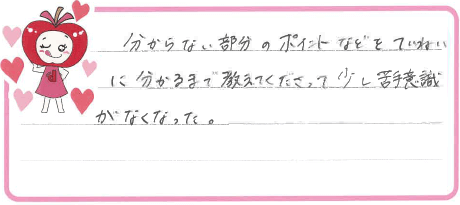 分からない部分のポイントなどをていねい
に分かるまで教えてくださって少し苦手意識
がなくなった。